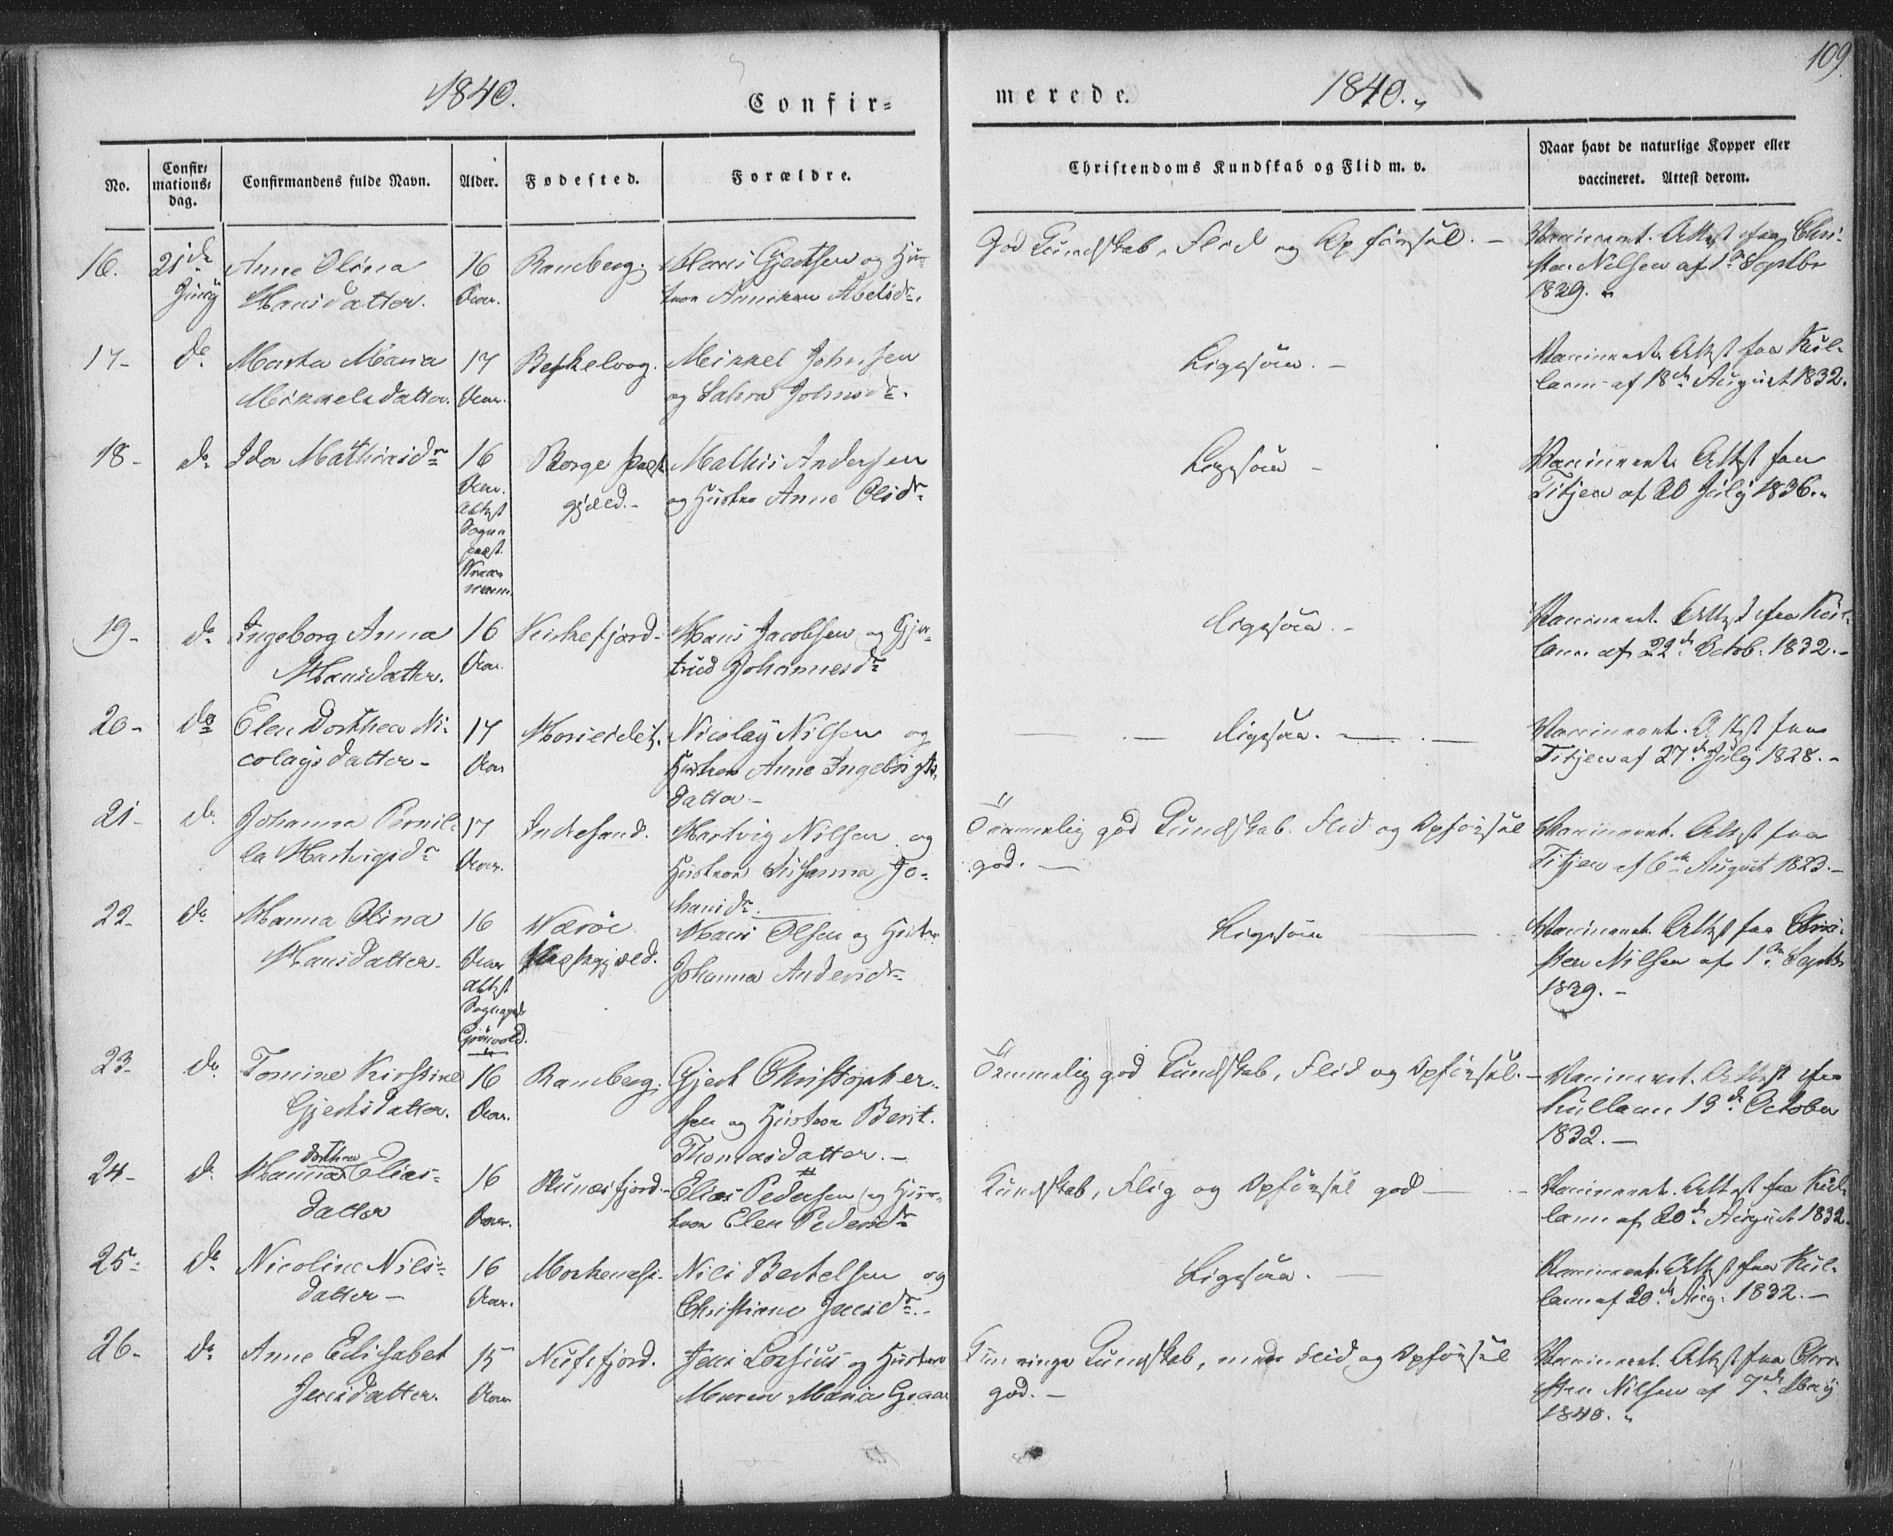 1840.
Confir=
merede.
1840.
109.
No.
Confir=
mations=
dag.
Confirmandens fulde Navn.
Alder.
Fødested.
Forældre.
Christendoms Kundskab og Flid m. v.
Naar havt de naturlige Kopper eller
vaccineret. Attest derom.
16.
21de
Juny
Anne Olina
Hansdatter.
16
Aar.
Ramberg
Hans Gjertsen og Hu=
stroe Anniken Abelsdr.
God Kundskab, Flid og Opførsel. -
Vaccineret. Attest fra Chri-
sten Nilsen af 1ste Septbr
1829.
17-
do
Martha Maria
Mikkelsdatter.
17
Aar.
Mikkel Johnsen
og Johnsdr.
Ligesaa. -
Vaccineret. Attest fra Kül-
lann af 18de August 1832.
18-
do
Ida Mathisdr
16
Aar.
Attest
Sogne
præst
Borge Præste
gjæld.-
Mathis Andersen
og Hustroe Anne Olsdr.
Ligesaa -
Vaccineret. Attest fra
Titjen af 20 July 1836.
19-
do
Ingeborg Anna
Hansdatter.
16
Aar.
Kirkefjord-
Hans Jacobsen og Gjer-
trud Johannesdr
Ligesaa. -
Vaccineret. Attest fra Kül-
lann af 22de Octob. 1832.-
20-
do
Elen Dorthea Ni-
colaysdatter-
17
Aar
Horseidet.
Nicolay Nilsen og
Hustroe Anne Ingebrigts
datter-
Ligesaa.
Vaccineret. Attest fra
Titjen af 27de July 1828.-
21-
do
Johanna Pernil-
la Hartvigsdr
17
Aar.
Indresand.
Hartvig Nilsen og
Hustroe Susanna Jo-
hansdr.
Temmelig god Kundskab. Flid og Opførsel
god. -
Vaccineret. Attest fra
Titjen af 6te August 1823.-
22-
do
Hanna Olina
Hansdatter-
16
Aar
Attest
Værøe
Præstegjæld.
Hans Olsen og Hustr
Johanna Andersdr
Ligesaa
Vaccineret. Attest fra Chri-
sten Nilsen af 1ste Septb
1829.-
23-
do
Tomine Kirstine
Gjertsdatter.
16
Aar.
Ramberg.
Gjert Christopher-
sen og Hustroe Berit
Thomasdatter.-
Temmelig god Kundskab, Flid og Opførsel.-
Vaccineret. Attest fra
Küllann 19de October
1832.-
24-
do
Dorthea
Hanna Elias-
datter
16
Aar.
Bunesfjord-
Elias Pedersen og Hus-
troe Elen Pedersdr
Kundskab, Flig og Opførsel god -
Vaccineret. Attest fra Kül-
lann af 20de August 1832.
25-
do
Nicoline Nils-
datter-
16
Aar.
Nils Bertelsen og
Christiane Jensdr.-
Ligesaa.
Vaccineret. Attest fra Kül-
lann af 20de Aug. 1832.-
26-
do
Anne Elisabet
Jensdatter.
15
Aar
Nufsfjord.
Jens og Hustroe
Maren Maria
Kun ringe Kundskab, men Flid og Opførsel
god.-
Vaccineret. Attest fra Chri-
sten Nilsen af 7de May
1840.